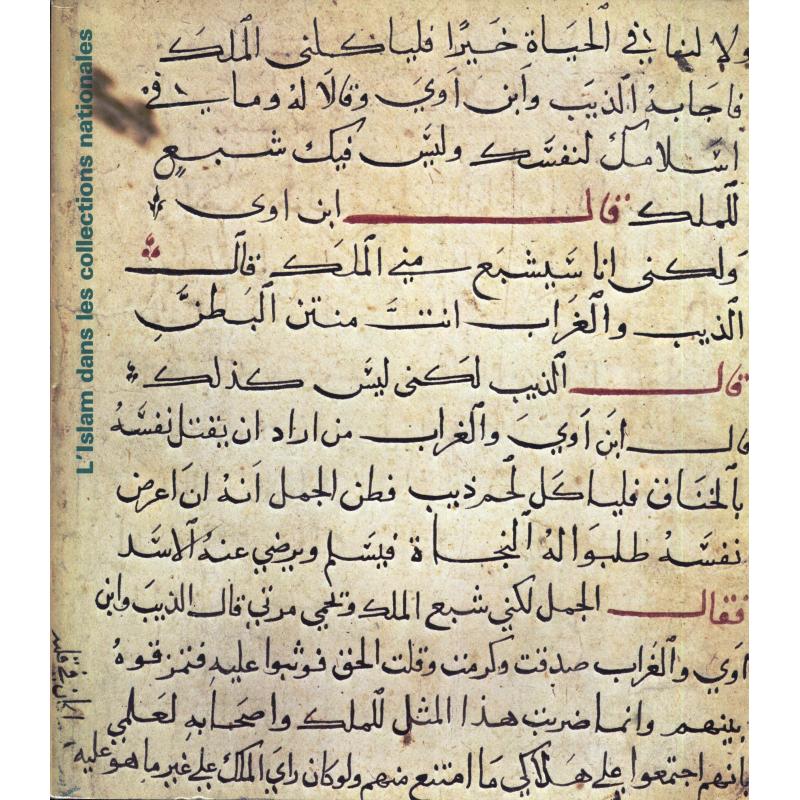 L'Islam dans les collections nationales
ولا لنفا في الحياة خيرا فليا كلنى الملك
فاجابه الذيب وابن اوي وقالا له وما في
اسلامك لنفسك وليس فيك شبع
للملك قال ابن اوى
ولكنى انا سيشبع مني الملك قال
الذيب والغراب انت منتن البطن
قال الذيب لكنى ليس كذلك
قال ابن اوي والغراب من اراد ان يقتل نفسه
بالخناق فلياكل لحم ذيب فظن الجمل انه ان اعرض
نفسه طلبوا له النجاة فيسلم ويرضي عنه الاسد
فقال الجمل لكني شبع الملك ولحمي مرتي قال الذيب وابن
اوي والغراب صدقت وكرمت وقلت الحق فوثبوا عليه فتمزقوه
بينهم وانما ضربت هذا المثل للملك واصحابه لعلمي
بانهم اجتمعوا علي هلاكي ما امتنع منهم ولو كان راي الملك علي غير ما هو عليه